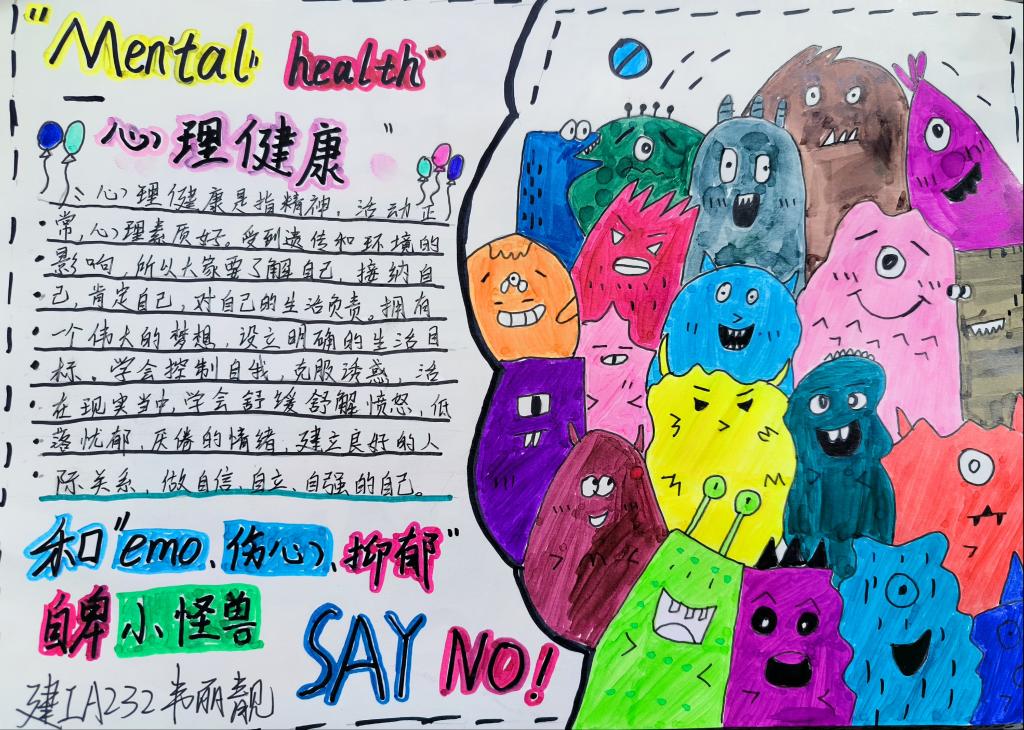 "Mental" health"
心理健康"
心理健康是指精神、活动正
常,心理素质好。受到遗传和环境的
影响,所以大家要了解自己,接纳自
己,肯定自己,对自己的生活负责。拥有
一个伟大的梦想,设立明确的生活目
标。学会控制自我,克服诱惑,活
在现实当中,学会舒缓舒解愤怒,低
落忧郁,厌倦的情绪,建立良好的人
际关系,做自信、自立、自强的自己。
和"emo、伤心、抑郁"
自卑小怪兽
SAY NO!
建工A232韦丽靓